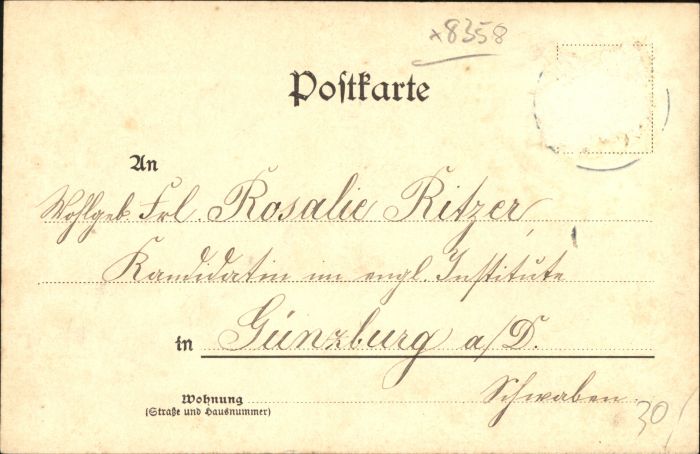 x8358
Postkarte
An
Wohlgeb Frl. Rosalie Ritzer,
Kandidatin im engl. Institute
in Günzburg a/D.
Wohnung Schwaben.
(Straße und Hausnummer)
30